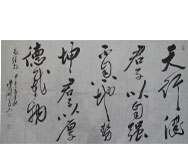 天行健
君子以自强
不息地势
坤君子以厚
德载物